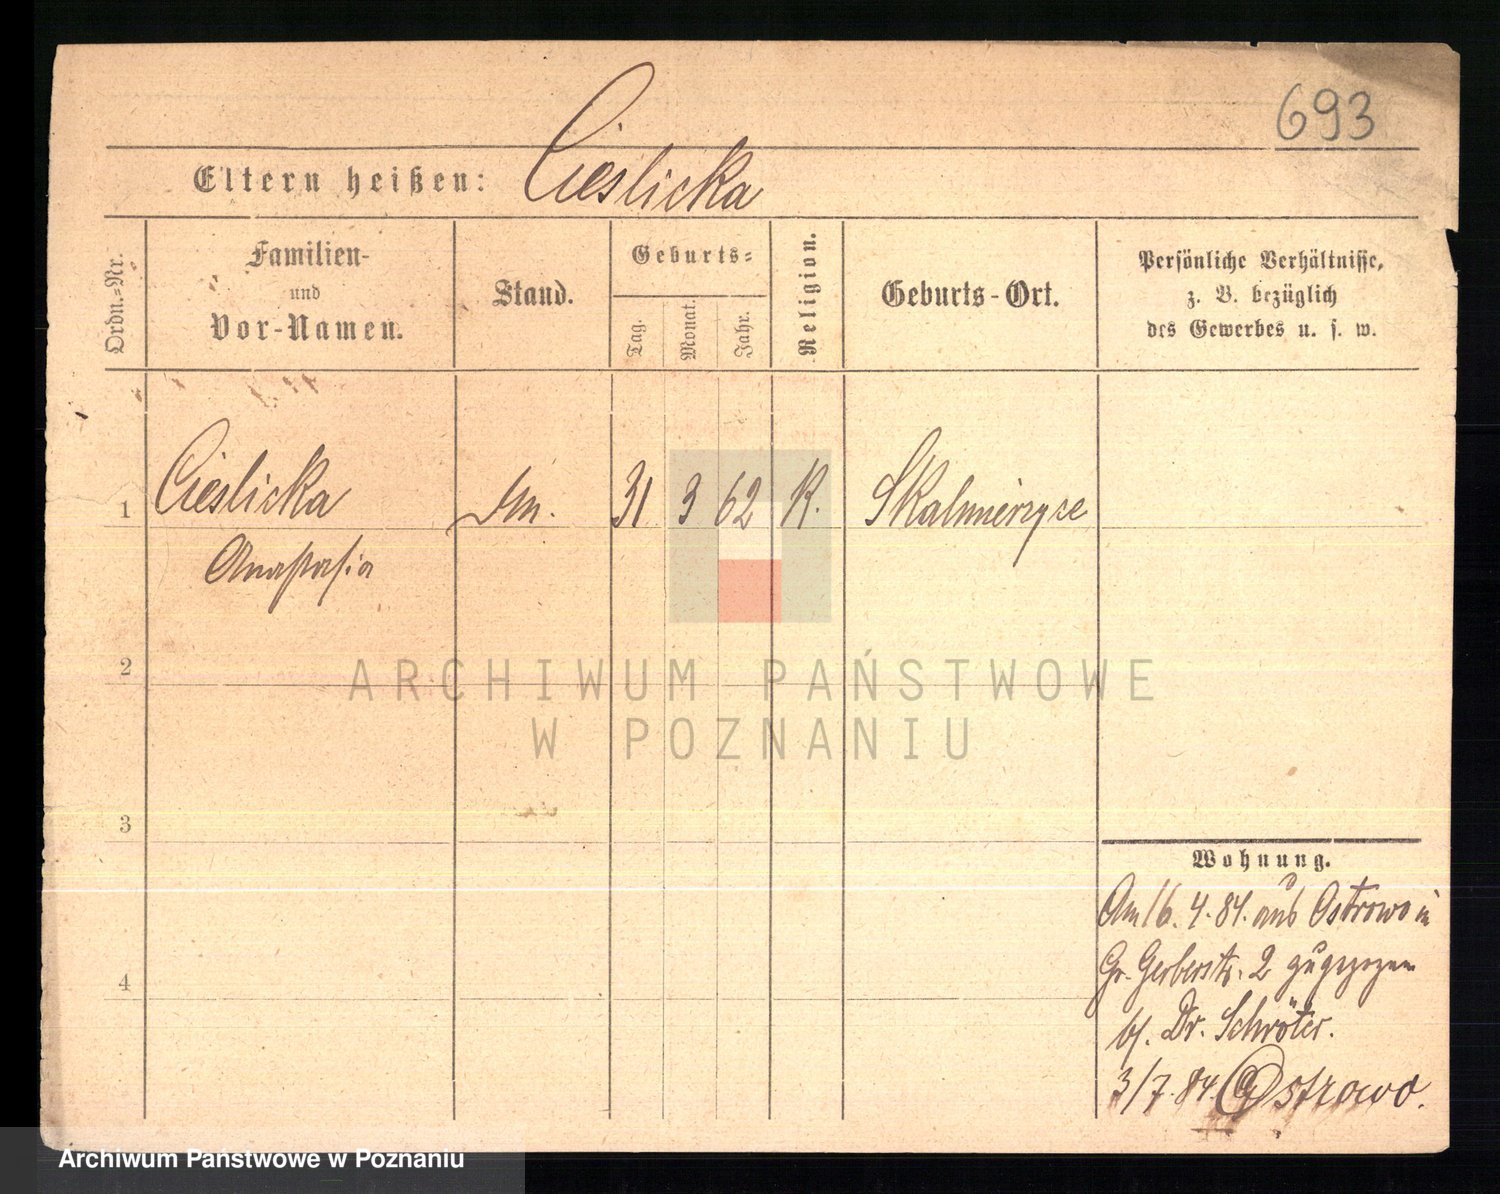 693
Eltern heißen: Cieslicka
Ordn.-Nr.
Familien-
und
Vor-Namen.
Stand.
Geburts-
Tag.
Monat.
Jahr.
Religion.
Geburts-Ort.
Persönliche Verhältnisse,
z. B. bezüglich
des Gewerbes u. s. w.
1 Cieslicka 31 3 62 K. Skalmierzyce
Anastasia
2
3
4
Wohnung.
Am 16. 4. 84. aus Ostrowo in
Gr. Gerberstr. 2 zugezogen
b/. Dr. Schröter.
3/7. 84. Ostrowo.
ARCHIWUM PAŃSTWOWE
W POZNANIU
Archiwum Państwowe w Poznaniu